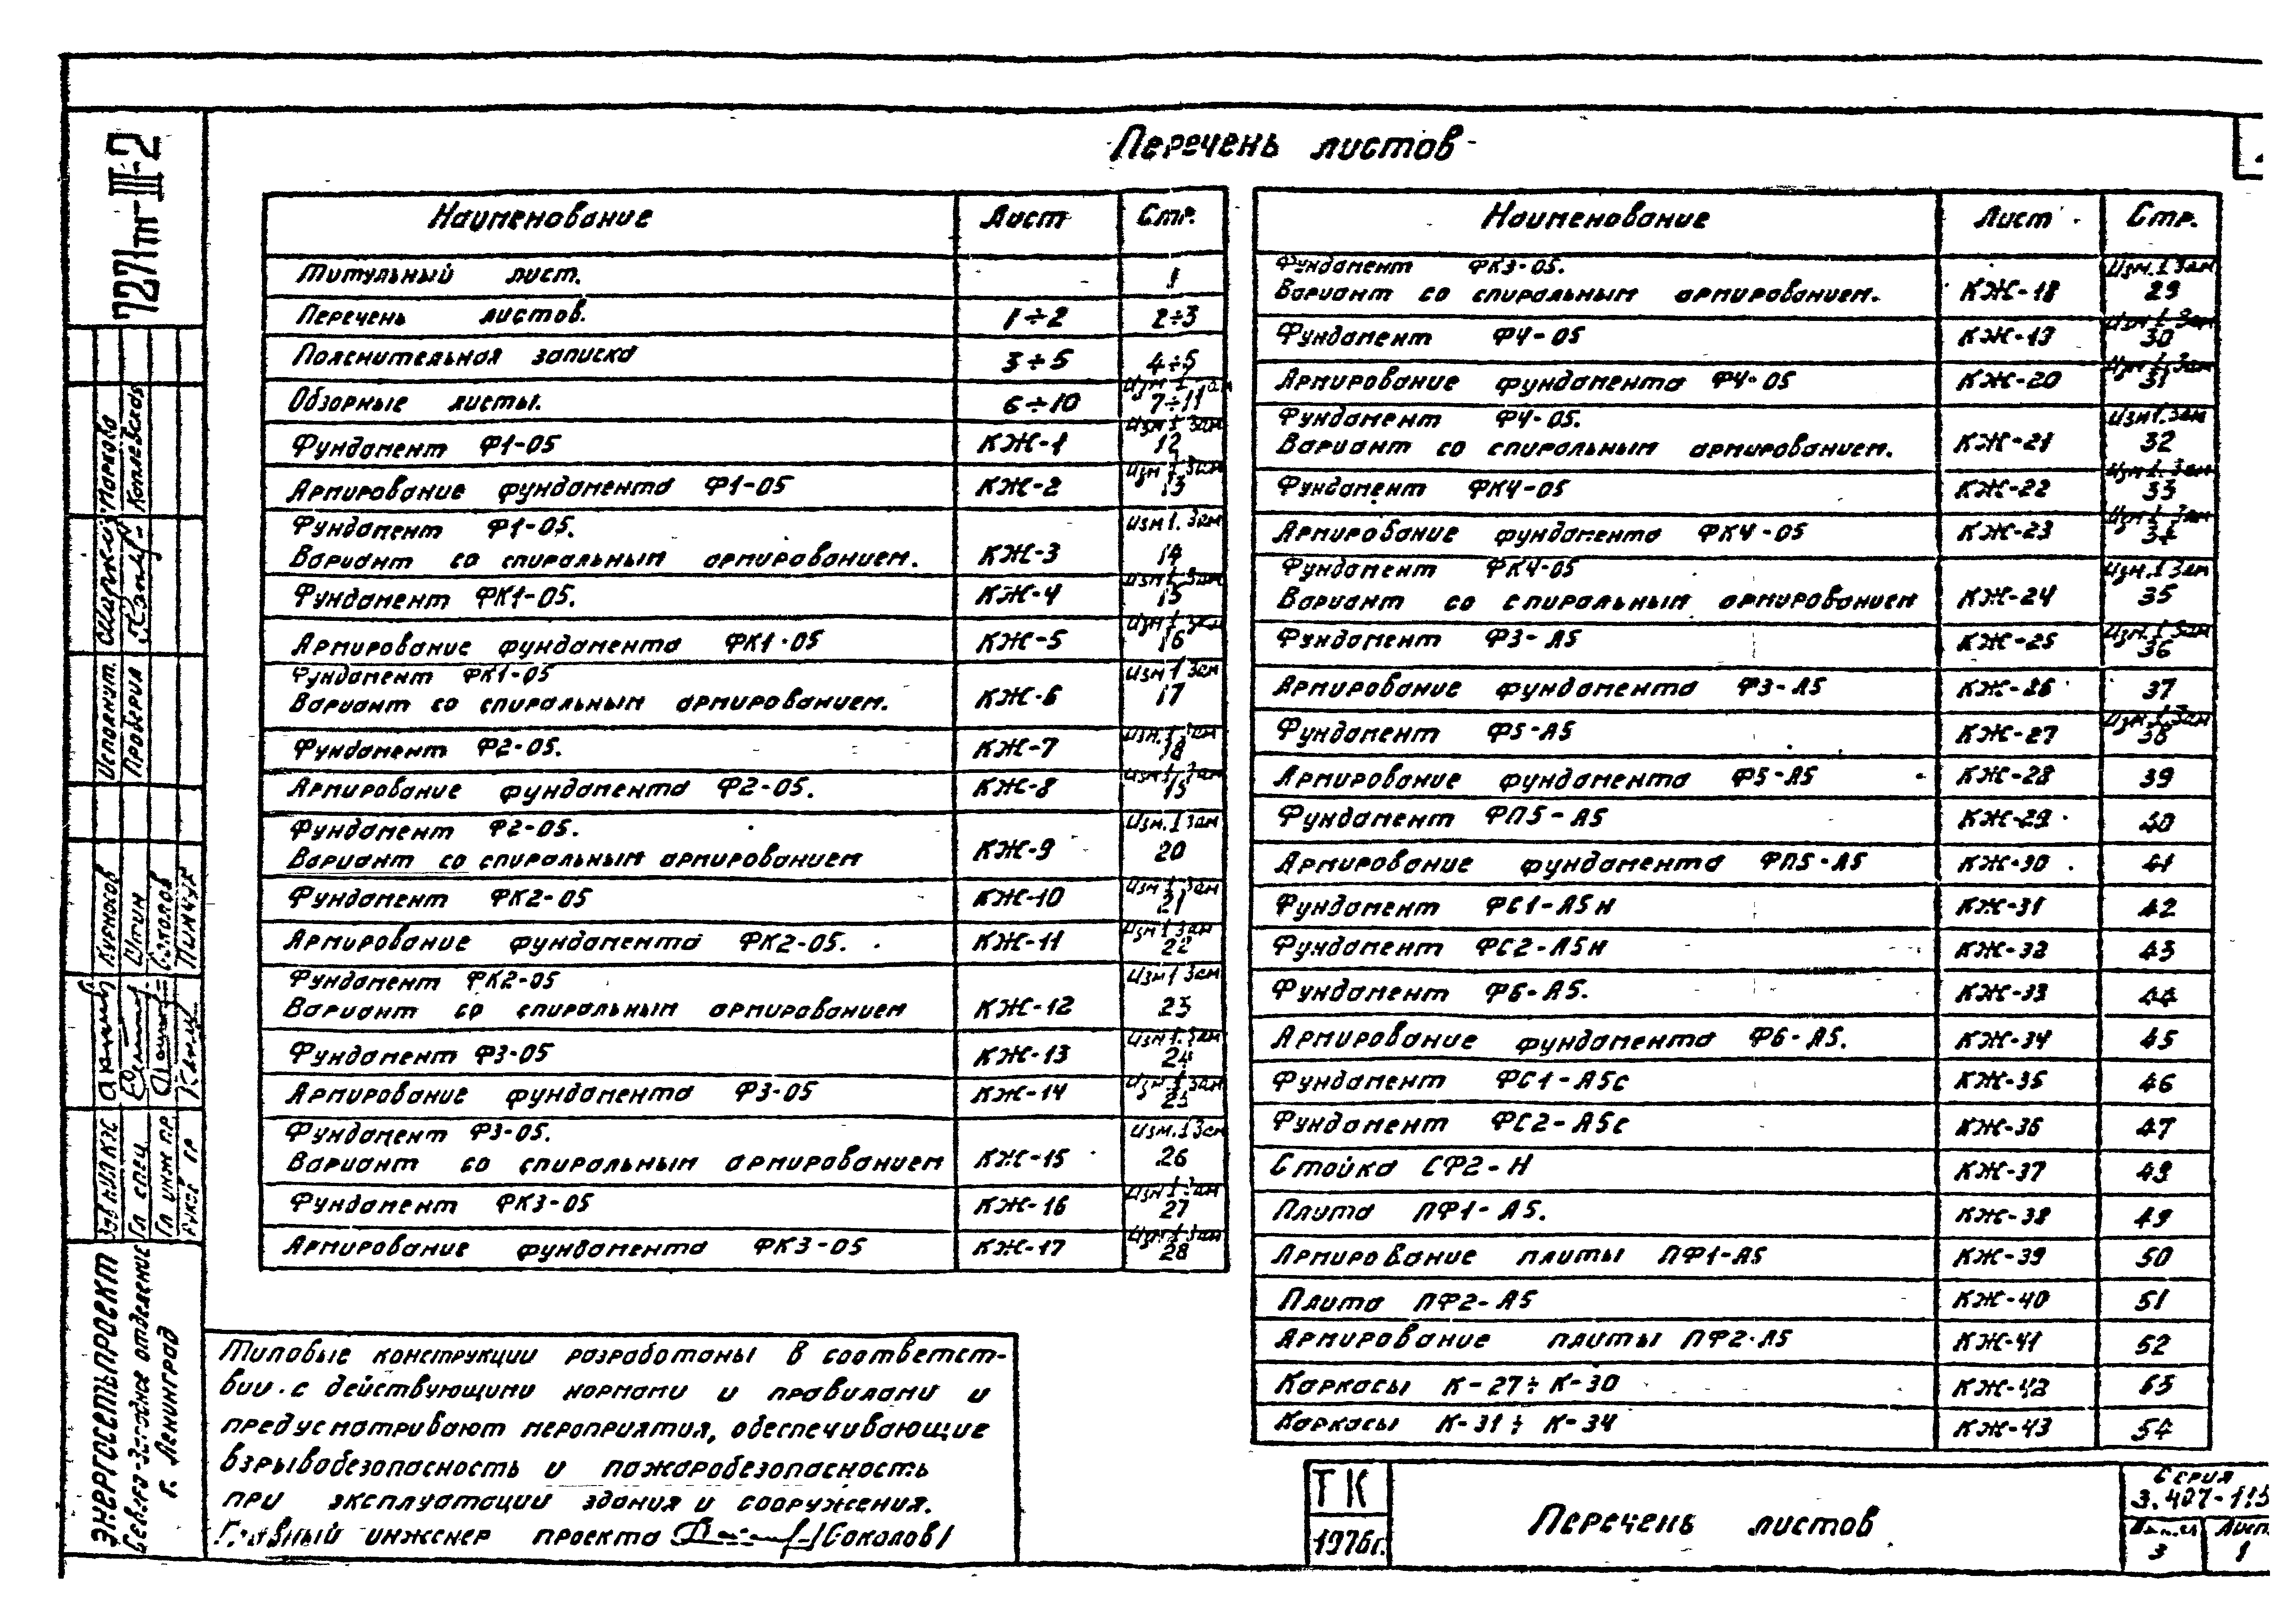 Перечень листов
Наименование Лист Стр.
Титульный лист. 1
Перечень листов. 1÷2 2÷3
Пояснительная записка 3÷5 4÷5
Изм 1 зам
Обзорные листы. 6÷10 7÷11
Изм 1 Зам
Фундамент Ф1-05 КЖ-1 12
Изм 1 Зам
Армирование фундамента Ф1-05 КЖ-2 13
Фундамент Ф1-05. Изм 1. Зам
Вариант со спиральным армированием. КЖ-3 14
Изм 1 Зам
Фундамент ФК1-05. КЖ-4 15
Изм 1 Зам
Армирование фундамента ФК1-05 КЖ-5 16
Фундамент ФК1-05 Изм 1 Зам
Вариант со спиральным армированием. КЖ-6 17
Изм. 1 Зам
Фундамент Ф2-05. КЖ-7 18
Изм 1. Зам
Армирование фундамента Ф2-05. КЖ-8 19
Фундамент Ф2-05. Изм. 1 Зам
Вариант со спиральным армированием КЖ-9 20
Изм 1 Зам
Фундамент ФК2-05 КЖ-10 21
Изм 1 Зам
Армирование фундамента ФК2-05. КЖ-11 22
Фундамент ФК2-05 Изм 1 Зам
Вариант со спиральным армированием КЖ-12 23
Изм 1. Зам
Фундамент Ф3-05 КЖ-13 24
Изм. 1 Зам
Армирование фундамента Ф3-05 КЖ-14 25
Фундамент Ф3-05. Изм. 1 Зам
Вариант со спиральным армированием КЖ-15 26
Изм 1 Зам
Фундамент ФК3-05 КЖ-16 27
Изм 1 Зам
Армирование фундамента ФК3-05 КЖ-17 28
Наименование Лист Стр.
Фундамент ФК3-05. Изм. 1 Зам
Вариант со спиральным армированием. КЖ-18 29
Изм 1 Зам
Фундамент Ф4-05 КЖ-19 30
Изм 1. Зам
Армирование фундамента Ф4-05 КЖ-20 31
Фундамент Ф4-05. Изм 1. Зам
Вариант со спиральным армированием. КЖ-21 32
Изм 1. Зам
Фундамент ФК4-05 КЖ-22 33
Изм 1 Зам
Армирование фундамента ФК4-05 КЖ-23 34
Фундамент ФК4-05 Изм. 1 Зам
Вариант со спиральным армированием КЖ-24 35
Изм. 1 Зам
Фундамент Ф3-А5 КЖ-25 36
Армирование фундамента Ф3-А5 КЖ-26 37
Изм. 1. Зам
Фундамент Ф5-А5 КЖ-27 38
Армирование фундамента Ф5-А5 КЖ-28 39
Фундамент ФП5-А5 КЖ-29 40
Армирование фундамента ФП5-А5 КЖ-30 41
Фундамент ФС1-А5н КЖ-31 42
Фундамент ФС2-А5н КЖ-32 43
Фундамент Ф6-А5. КЖ-33 44
Армирование фундамента Ф6-А5. КЖ-34 45
Фундамент ФС1-А5с КЖ-35 46
Фундамент ФС2-А5с КЖ-36 47
Стойка СФ2-Н КЖ-37 48
Плита ПФ1-А5. КЖ-38 49
Армирование плиты ПФ1-А5 КЖ-39 50
Плита ПФ2-А5 КЖ-40 51
Армирование плиты ПФ2-А5 КЖ-41 52
Каркасы К-27÷К-30 КЖ-42 53
Каркасы К-31÷К-34 КЖ-43 54
Типовые конструкции разработаны в соответст-
вии с действующими нормами и правилами и
предусматривают мероприятия, обеспечивающие
взрывобезопасность и пожаробезопасность
при эксплуатации здания и сооружения.
Главный инженер проекта /Соколов/
ТК
1976г.
Перечень листов
Серия
3.407-115
Выпуск Лист
3 1
7271тм-III-2
Исполнит. Маркова
Проверил Котлевская
Зав НИЛКЖС Курносов
Гл спец Штин
Гл инж пр Соколов
Руков гр Пинчук
ЭНЕРГОСЕТЬПРОЕКТ
Северо-Западное отделение
г. Ленинград